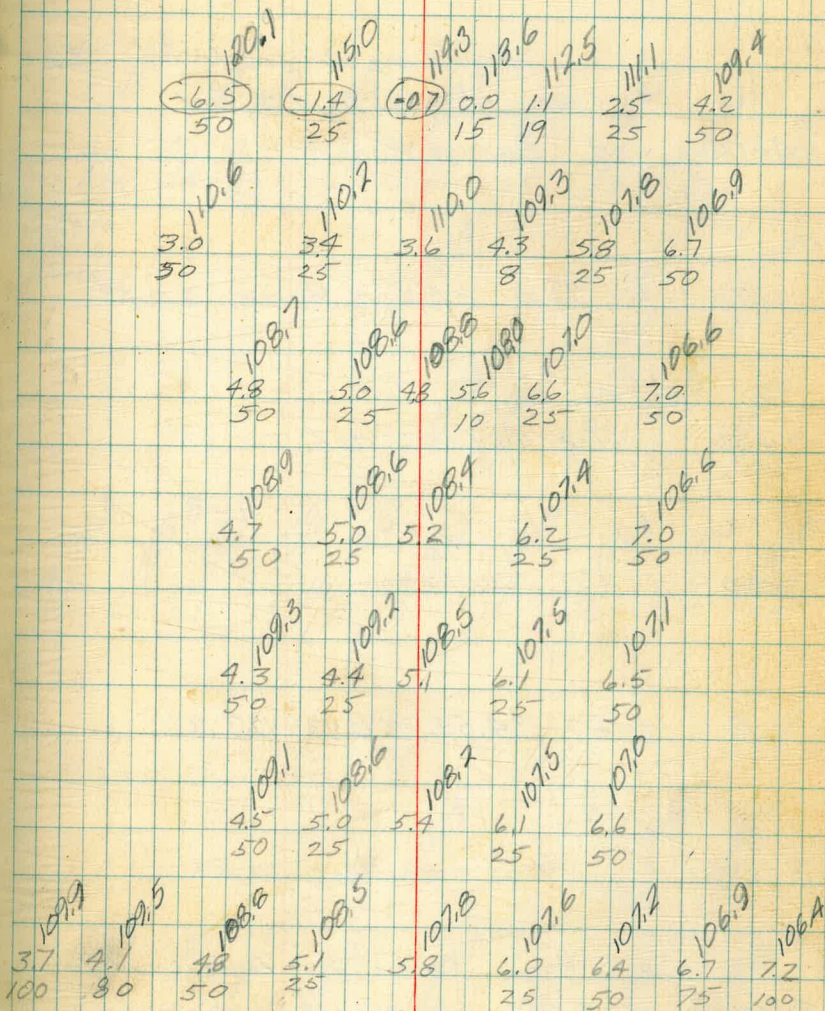 120.1 115.0 114.3 113.6 112.5 111.1 109.4
-6.5 -1.4 -0.7 0.0 1.1 2.5 4.2
50 25 15 19 25 50
110.6 110.2 110.0 109.3 107.8 106.9
3.0 3.4 3.6 4.3 5.8 6.7
50 25 8 25 50
108.7 108.6 108.8 108.0 107.0 106.6
4.8 5.0 4.8 5.6 6.6 7.0
50 25 10 25 50
108.9 108.6 108.4 107.4 106.6
4.7 5.0 5.2 6.2 7.0
50 25 25 50
109.3 109.2 108.5 107.5 107.1
4.3 4.4 5.1 6.1 6.5
50 25 25 50
109.1 108.6 108.2 107.5 107.0
4.5 5.0 5.4 6.1 6.6
50 25 25 50
109.9 109.5 108.8 108.5 107.8 107.6 107.2 106.9 106.4
3.7 4.1 4.8 5.1 5.8 6.0 6.4 6.7 7.2
100 80 50 25 25 50 75 100